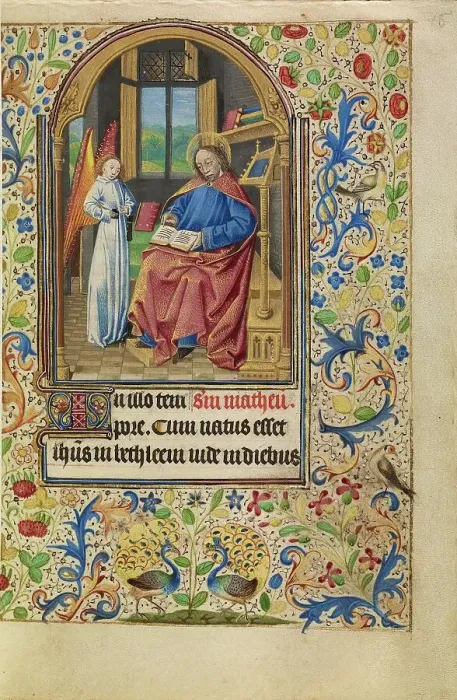 In illo tem Sm matheu.
pore. Cum natus esset
ihūs in bethleem iude in diebus